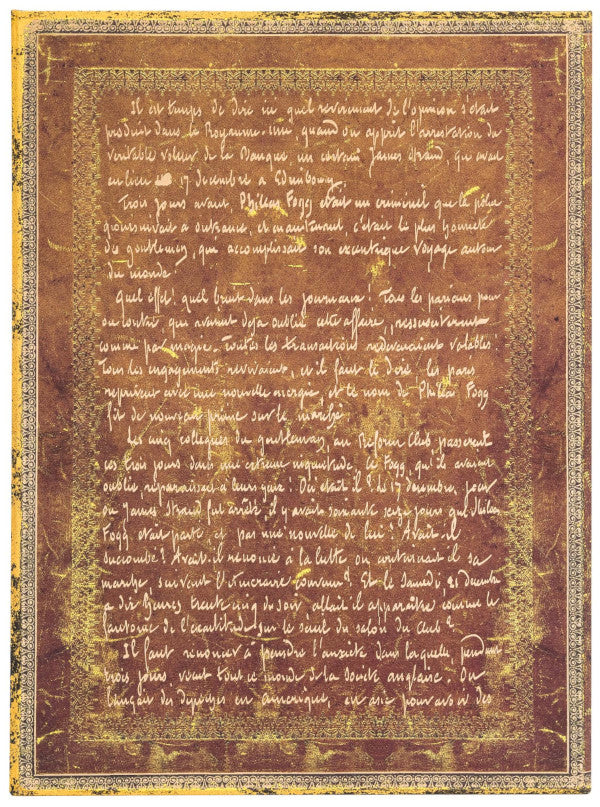 Il est temps de dire ici quel revirement de l'opinion s'était
produit dans le Royaume-Uni, quand on apprit l'arrestation du
véritable voleur de la Banque, un certain James Strand, qui avait
eu lieu le 17 décembre à Edimbourg.
Trois jours avant, Phileas Fogg était un criminel que la police
poursuivait à outrance, et maintenant, c'était le plus honnête
des gentlemen, qui accomplissait son excentrique voyage autour
du monde.
Quel effet, quel bruit dans les journaux! Tous les parieurs pour
ou contre, qui avaient déjà oublié cette affaire, ressuscitèrent
comme par magie. Toutes les transactions redevenaient valables.
Tous les engagements revivaient, et il faut le dire, les paris
reprirent avec une nouvelle énergie, et le nom de Phileas Fogg
fit de nouveau prime sur le marché.
Les cinq collègues du gentleman, au Reform Club, passèrent
ces trois jours dans une certaine inquiétude. Ce Fogg, qu'ils avaient
oublié, reparaissait à leurs yeux! Où était-il? Le 17 décembre, jour
où James Strand fut arrêté, il y avait soixante seize jours que Phileas
Fogg était parti, et pas une nouvelle de lui! Avait-il
succombé? Avait-il renoncé à la lutte ou continuait-il sa
marche suivant l'itinéraire convenu? Et le Samedi, 21 Décembre
à dix heures trente cinq du soir allait-il apparaître comme le
fantôme de l'exactitude sur le seuil du salon du Club?
Il faut renoncer à peindre l'anxiété dans laquelle, pendant
trois jours, vécut tout ce monde de la Société anglaise. On
lançait des dépêches en Amérique, en Asie pour avoir des